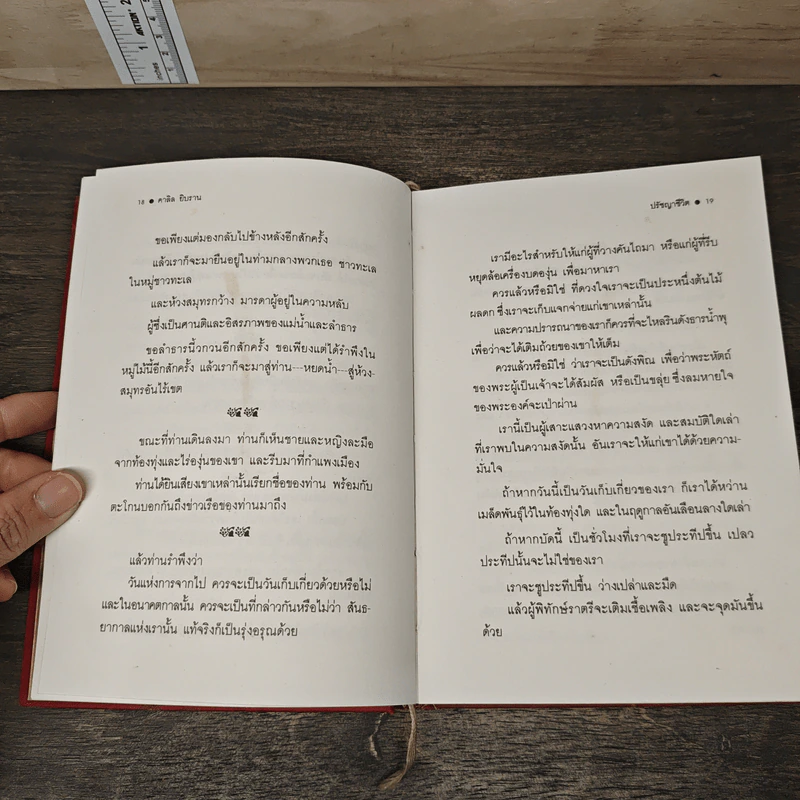 18 ● คาลิล ยิบราน
ขอเพียงแต่มองกลับไปข้างหลังอีกสักครั้ง
แล้วเราก็จะมายืนอยู่ในท่ามกลางพวกเธอ ชาวทะเล
ในหมู่ชาวทะเล
และห้วงสมุทรกว้าง มารดาผู้อยู่ในความหลับ
ผู้ซึ่งเป็นศานติและอิสรภาพของแม่น้ำและลำธาร
ขอลำธารนี้วกวนอีกสักครั้ง ขอเพียงแต่ได้รำพึงใน
หมู่ไม้นี้อีกสักครั้ง แล้วเราก็จะมาสู่ท่าน---หยดน้ำ---สู่ห้วง-
สมุทรอันไร้เขต
ขณะที่ท่านเดินลงมา ท่านก็เห็นชายและหญิงละมือ
จากท้องทุ่งและไร่องุ่นของเขา และรีบมาที่กำแพงเมือง
ท่านได้ยินเสียงเขาเหล่านั้นเรียกชื่อของท่าน พร้อมกับ
ตะโกนบอกกันถึงข่าวเรือของท่านมาถึง
แล้วท่านรำพึงว่า
วันแห่งการจากไป ควรจะเป็นวันเก็บเกี่ยวด้วยหรือไม่
และในอนาคตกาลนั้น ควรจะเป็นที่กล่าวกันหรือไม่ว่า สันธ-
ยากาลแห่งเรานั้น แท้จริงก็เป็นรุ่งอรุณด้วย
ปรัชญาชีวิต ● 19
เรามีอะไรสำหรับให้แก่ผู้ที่วางคันไถมา หรือแก่ผู้ที่รีบ
หยุดล้อเครื่องบดองุ่น เพื่อมาหาเรา
ควรแล้วหรือมิใช่ ที่ดวงใจเราจะเป็นประหนึ่งต้นไม้
ผลดก ซึ่งเราจะเก็บแจกจ่ายแก่เขาเหล่านั้น
และความปรารถนาของเราก็ควรที่จะไหลรินดังธารน้ำพุ
เพื่อว่าจะได้เติมถ้วยของเขาให้เต็ม
ควรแล้วหรือมิใช่ ว่าเราจะเป็นดังพิณ เพื่อว่าพระหัตถ์
ของพระผู้เป็นเจ้าจะได้สัมผัส หรือเป็นขลุ่ย ซึ่งลมหายใจ
ของพระองค์จะเป่าผ่าน
เรานี้เป็นผู้เสาะแสวงหาความสงัด และสมบัติใดเล่า
ที่เราพบในความสงัดนั้น อันเราจะให้แก่เขาได้ด้วยความ-
มั่นใจ
ถ้าหากวันนี้เป็นวันเก็บเกี่ยวของเรา ก็เราได้หว่าน
เมล็ดพันธุ์ไว้ในท้องทุ่งใด และในฤดูกาลอันเลือนลางใดเล่า
ถ้าหากบัดนี้ เป็นชั่วโมงที่เราจะชูประทีปขึ้น เปลว
ประทีปนั้นจะไม่ใช่ของเรา
เราจะชูประทีปขึ้น ว่างเปล่าและมืด
แล้วผู้พิทักษ์ราตรีจะเติมเชื้อเพลิง และจะจุดมันขึ้น
ด้วย